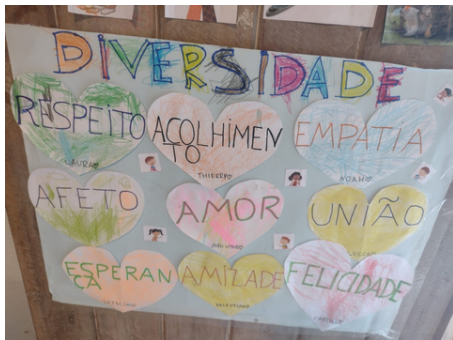 DIVERSIDADE
RESPEITO
LAURA
ACOLHIMEN
TO
THIERRY
EMPATIA
NOAH
AFETO
AMOR
UNIÃO
ESPERAN
ÇA
AMIZADE
FELICIDADE